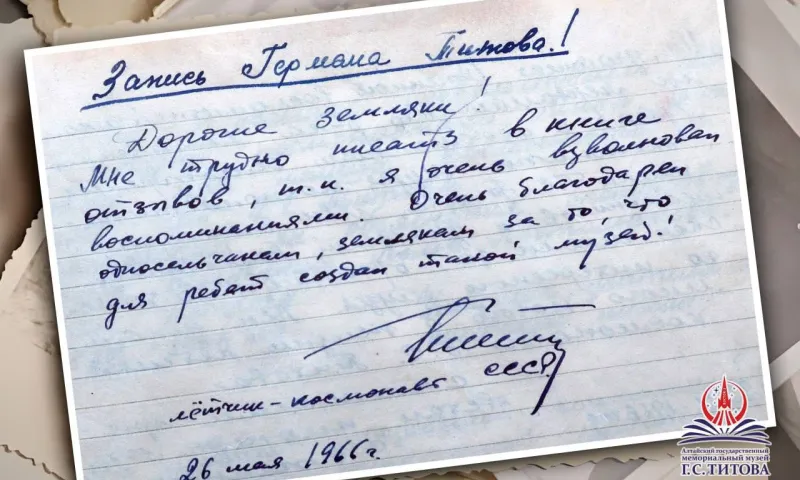 Запись Германа Титова!
Дорогие земляки!
Мне трудно писать в книге
отзывов, т.к. я очень взволнован
воспоминаниями. Очень благодарен
односельчанам, землякам за то, что
для ребят создан такой музей!
лётчик-космонавт СССР.
26 мая 1966 г.
Алтайский государственный
мемориальный музей
Г.С.ТИТОВА